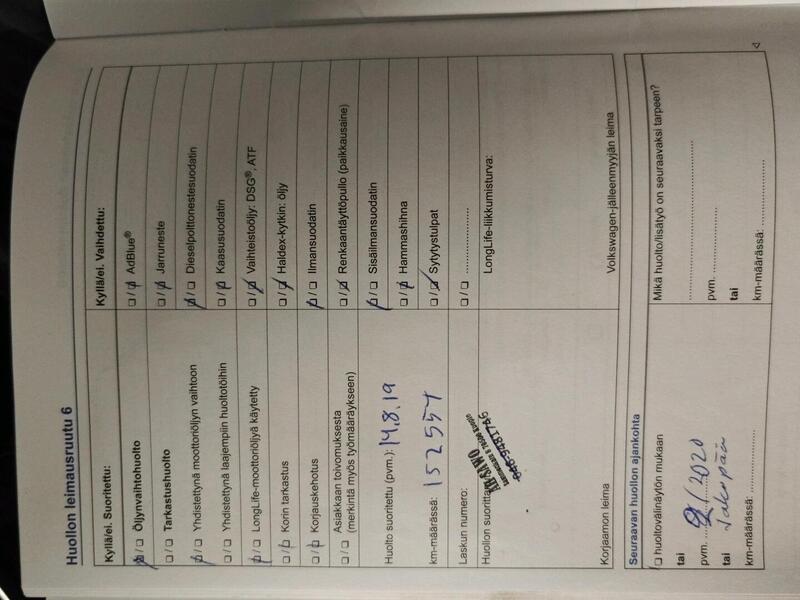 Huollon leimausruutu 6
Kyllä/ei. Suoritettu:
☐/☐ Öljynvaihtohuolto
☐/☐ Tarkastushuolto
☐/☐ Yhdistettynä moottoriöljyn vaihtoon
☐/☐ Yhdistettynä laajempiin huoltotöihin
☐/☐ LongLife-moottoriöljyä käytetty
☐/☐ Korin tarkastus
☐/☐ Korjauskehotus
☐/☐ Asiakkaan toivomuksesta
(merkintä myös työmääräykseen)
Huolto suoritettu (pvm.): 14.8.19
km-määrässä: 152557
Laskun numero:
Huollon suoritta
Korjaamon leima
Kyllä/ei. Vaihdettu:
☐/☐ AdBlue®
☐/☐ Jarruneste
☐/☐ Dieselpolttonestesuodatin
☐/☐ Kaasusuodatin
☐/☐ Vaihteistoöljy: DSG®, ATF
☐/☐ Haldex-kytkin: öljy
☐/☐ Ilmansuodatin
☐/☐ Renkaantäyttöpullo (paikkausaine)
☐/☐ Sisäilmansuodatin
☐/☐ Hammashihna
☐/☐ Sytytystulpat
☐/☐ ....................
LongLife-liikkumisturva:
Volkswagen-jälleenmyyjän leima
Seuraavan huollon ajankohta
☐ huoltovälinäytön mukaan
tai
pvm. .... /2020
tai Jakopää
km-määrässä: ....................
Mikä huolto/lisätyö on seuraavaksi tarpeen?
....................
pvm. ....................
tai
km-määrässä: ....................